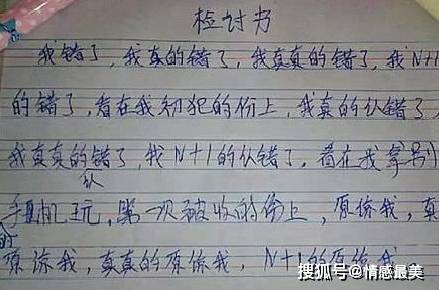 检讨书
我错了，我真的错了，我真真的错了，我N+1
的错了，看在我初犯的份上，我真的认错了，
我真真的认错了，我N+1的认错了，看在我拿别
手机玩，第一次被收的份上，原谅我，真
的原谅我，真真的原谅我，N+1的原谅我
搜狐号@情感最美